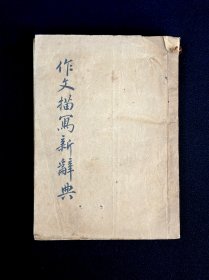 作文描寫新辭典